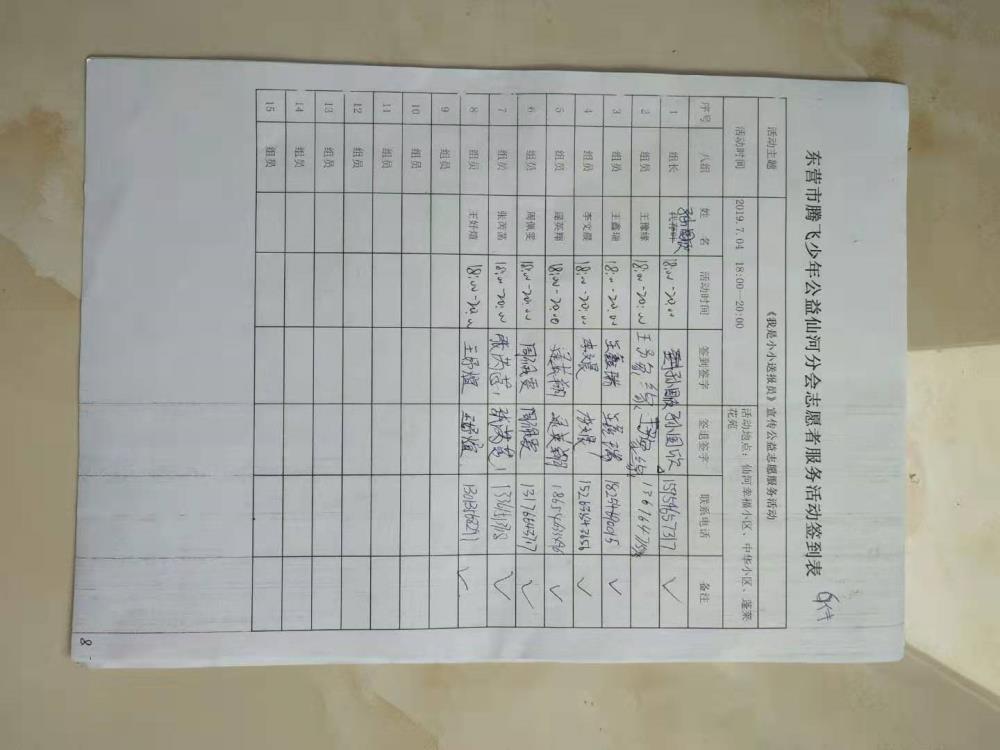 东营市腾飞少年公益仙河分会志愿者服务活动签到表
活动主题 《我是小小送报员》宣传公益志愿服务活动
活动时间 2019.7.04 18:00—20:00 活动地点：仙河幸福小区、中华小区、蓬莱花苑
序号 八组 姓名 活动时间 签到签字 签退签字 联系电话 备注
1 组长 孙国欣 18:00-20:00 孙国欣 孙国欣 15954657317 ✓
2 组员 王豫缘 18:00-20:00 王豫缘
3 组员 王鑫瑞 18:00-20:00 王鑫瑞 王鑫瑞 18254690015 ✓
4 组员 李文晨 18:00-20:00 李文晨 李文晨 ✓
5 组员 逯英翔 18:00-20:00 逯英翔 逯英翔 ✓
6 组员 周佩雯 18:00-20:00 周佩雯 周佩雯 ✓
7 组员 张芮菡 18:00-20:00 ✓
8 组员 王妤煊 18:00-20:00 王妤煊 王妤煊 ✓
9 组员
10 组员
11 组员
12 组员
13 组员
14 组员
15 组员
8